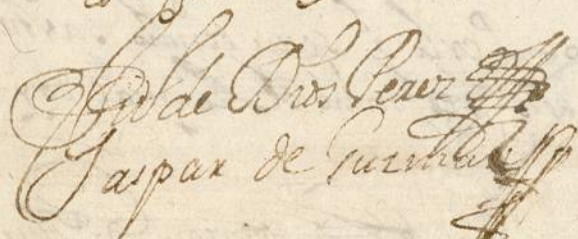 Ju.o de Dios Perez
Gaspar de Guzman